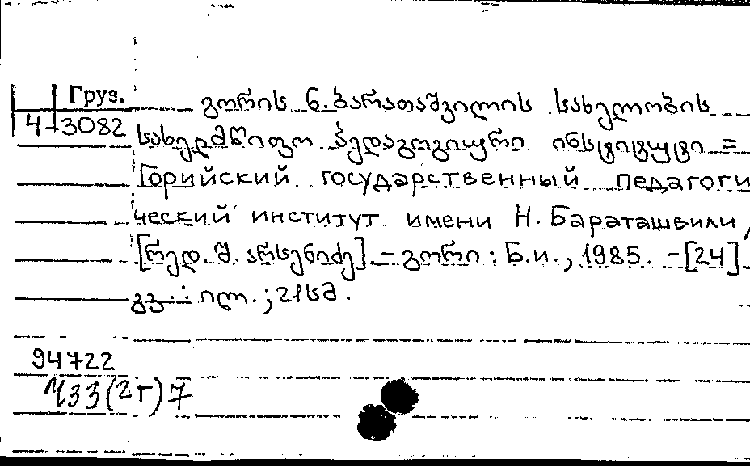 Груз.
4-3082
გორის ნ. ბარათაშვილის სახელობის
სახელმწიფო პედაგოგიური ინსტიტუტი =
Горийский государственный педагоги
ческий институт имени Н. Бараташвили /
[რედ. შ. არსენიძე] – გორი : Б.и., 1985. – [24]
გვ. : ილ. ; 21სმ.
94722
Ч33(2Г)7